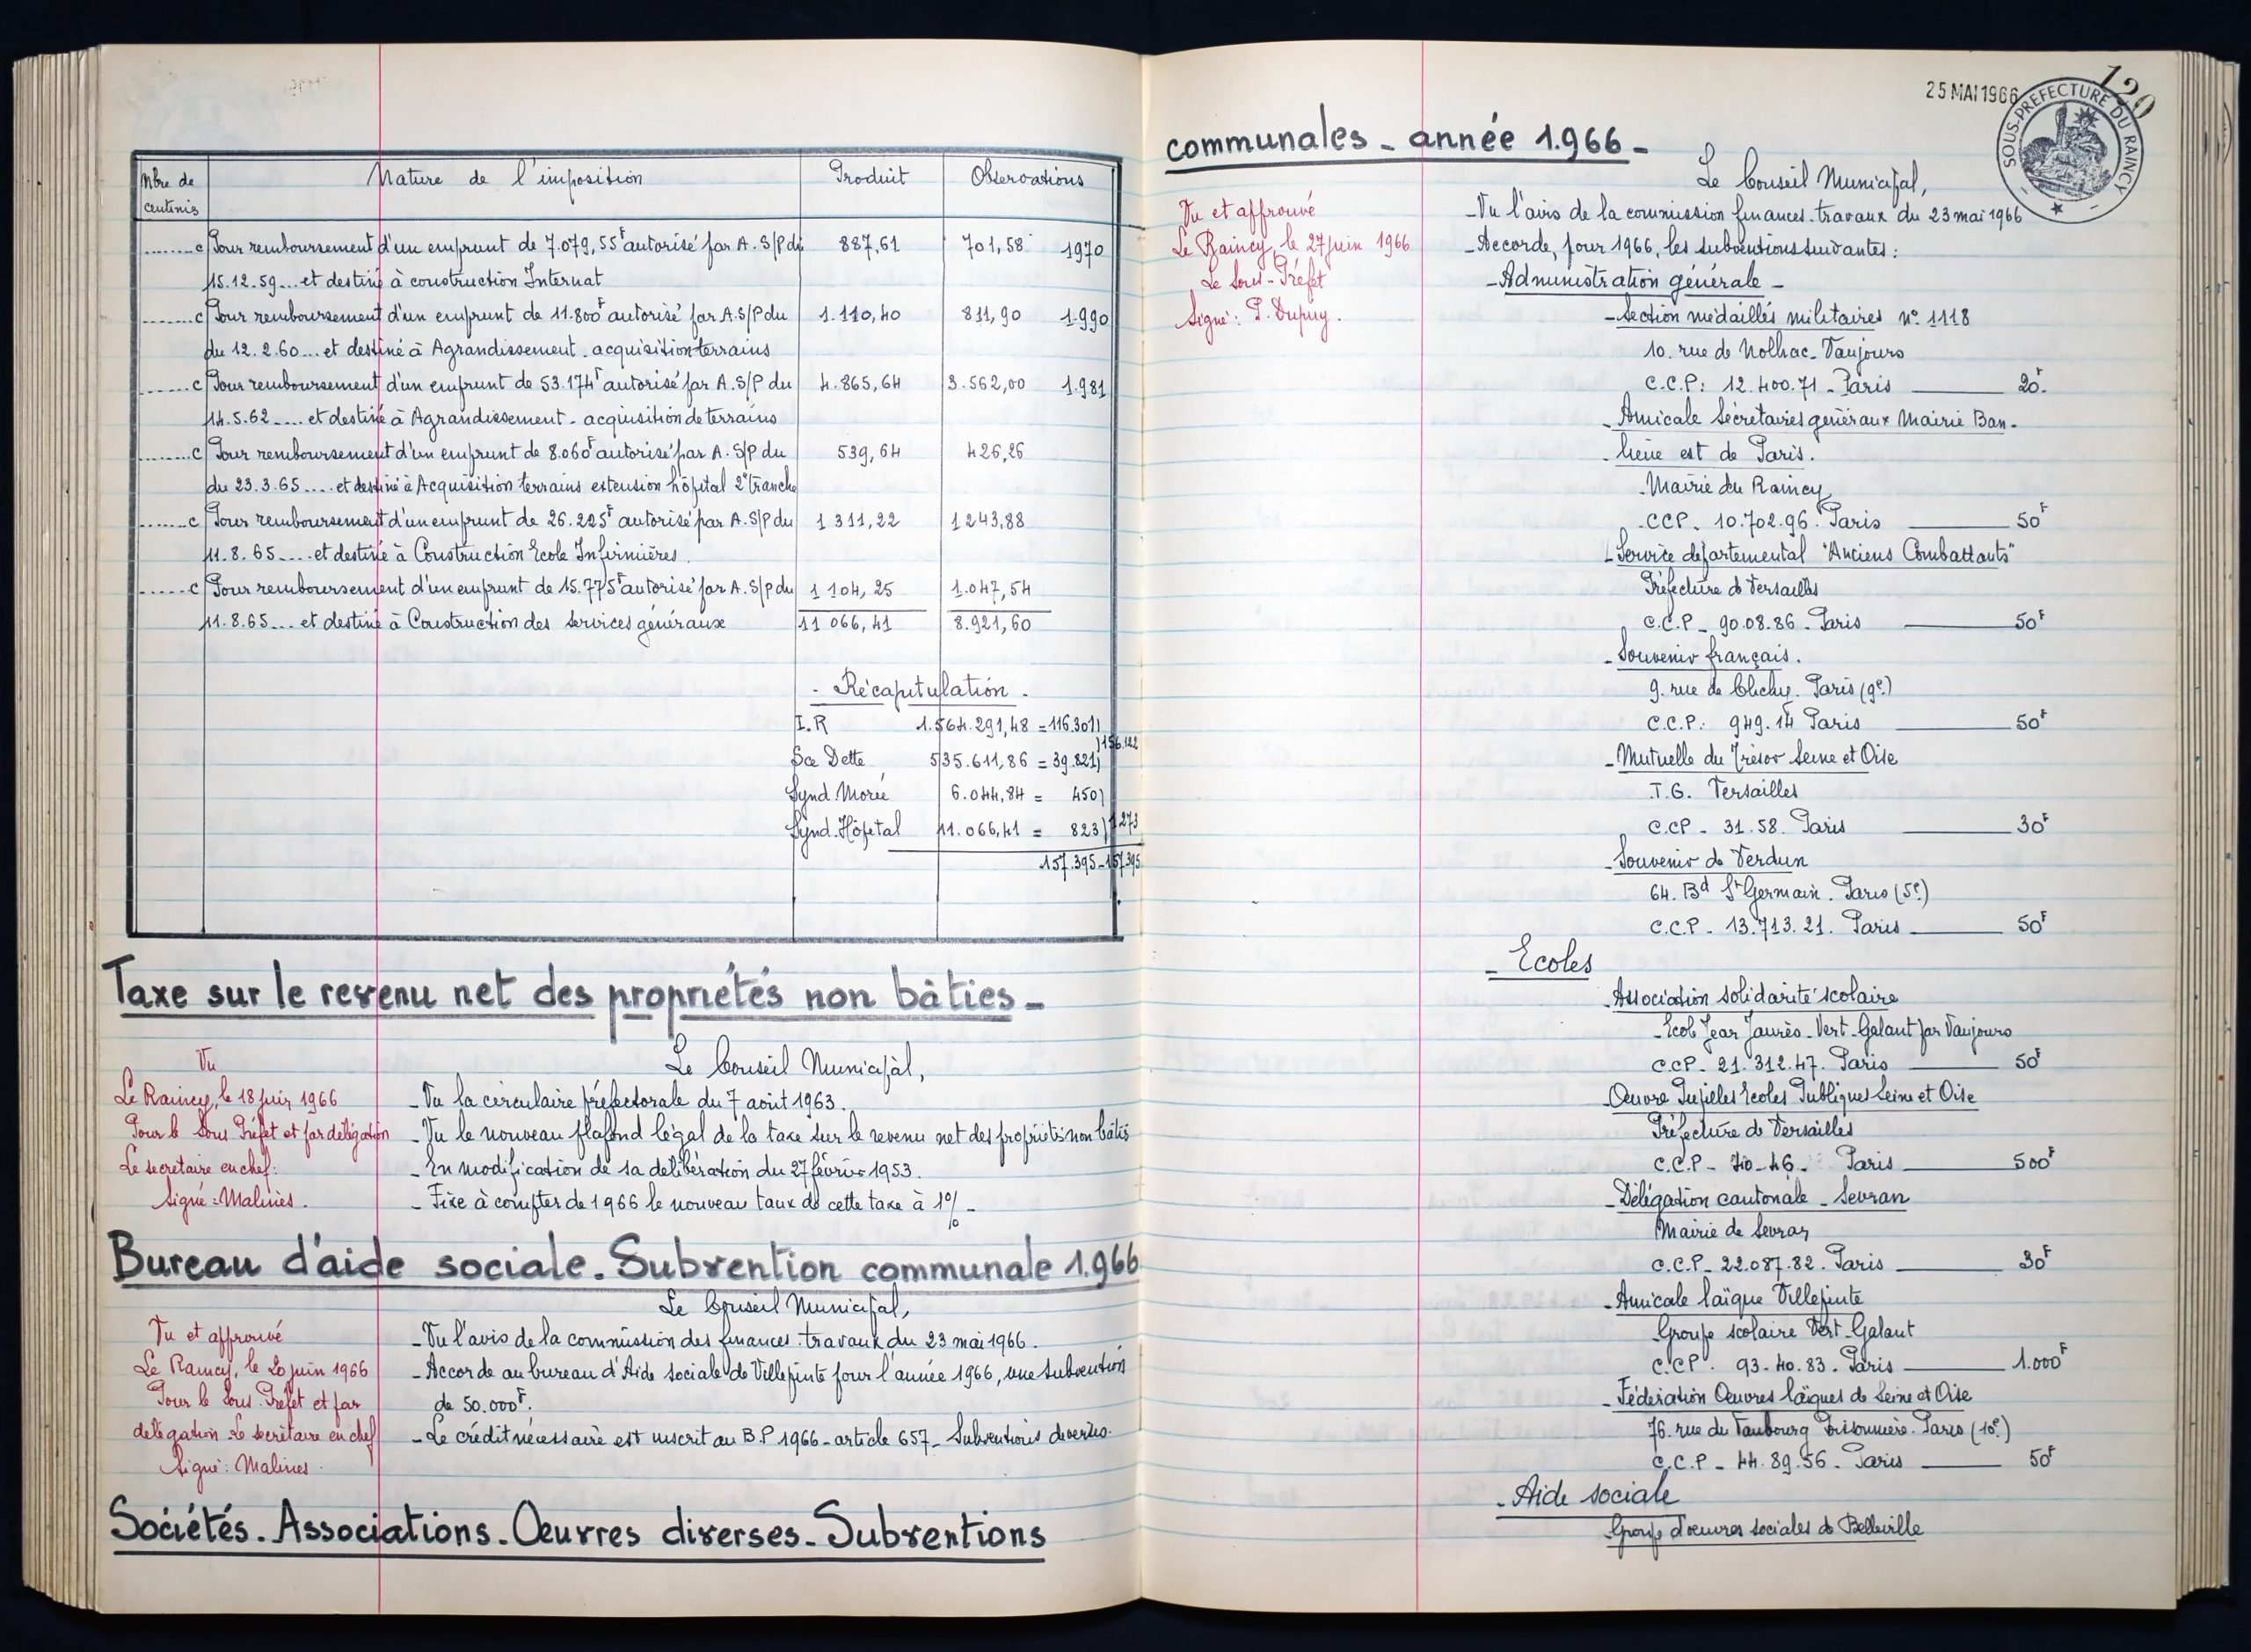 Nbre de centimes | Nature de l'imposition | Produit | Observations
........c Pour remboursement d'un emprunt de 7.079,55F autorisé par A.S/P du 887,61 701,58 1970
15.12.59... et destiné à construction Internat
........c Pour remboursement d'un emprunt de 11.800F autorisé par A.S/P du 1.110,40 811,90 1.990
du 12.2.60... et destiné à Agrandissement - acquisition terrains
........c Pour remboursement d'un emprunt de 53.174F autorisé par A.S/P du 4.865,64 3.562,00 1.981
14.5.62.... et destiné à Agrandissement - acquisition de terrains
........c Pour remboursement d'un emprunt de 8.060F autorisé par A.S/P du 539,64 426,26
du 23.3.65.... et destiné à Acquisition terrains extension hôpital 2e tranche
........c Pour remboursement d'un emprunt de 26.225F autorisé par A.S/P du 1 311,22 1243,88
11.8.65.... et destiné à Construction Ecole Infirmières.
........c Pour remboursement d'un emprunt de 15.775F autorisé par A.S/P du 1 104,25 1.047,54
11.8.65... et destiné à Construction des services généraux 11 066,41 8.921,60
- Récapitulation -
I.R 1.564.291,48 = 116.301)
) 156.122
Sce Dette 535.611,86 = 39.821)
Synd. Morée 6.044,84 = 450)
Synd. Hôpital 11.066,41 = 823) 1.273
157.395 - 157.395
Taxe sur le revenu net des propriétés non bâties -
Vu
Le Raincy, le 18 juin 1966
Pour le Sous Préfet et par délégation
Le secrétaire en chef:
Signé: Malines.
Le Conseil Municipal,
- Vu la circulaire préfectorale du 7 août 1963.
- Vu le nouveau plafond légal de la taxe sur le revenu net des propriétés non bâties
- En modification de sa délibération du 27 février 1953.
- Fixe à compter de 1966 le nouveau taux de cette taxe à 1% -
Bureau d'aide sociale. Subvention communale 1.966
Vu et approuvé
Le Raincy, le 20 juin 1966
Pour le Sous Préfet et par
délégation Le secrétaire en chef
Signé: Malines.
Le Conseil Municipal,
- Vu l'avis de la commission des finances. travaux du 23 mai 1966.
- Accorde au bureau d'Aide sociale de Villepinte pour l'année 1966, une subvention
de 50.000F.
- Le crédit nécessaire est inscrit au B.P 1966 - article 657 - Subventions diverses.
Sociétés. Associations. Oeuvres diverses. Subventions
25 MAI 1966
120
SOUS-PREFECTURE DU RAINCY
communales - année 1.966 -
Vu et approuvé
Le Raincy, le 27 juin 1966
Le Sous-Préfet
Signé: P. Dupuy.
Le Conseil Municipal,
- Vu l'avis de la commission finances. travaux du 23 mai 1966
- Accorde, pour 1966, les subventions suivantes:
- Administration générale -
- Section médaillés militaires n° 1118
10. rue de Nolhac - Vaujours
C.C.P: 12.400.71 - Paris 20F.
- Amicale Secrétaires généraux Mairie Ban-
lieue est de Paris.
- Mairie du Raincy
- CCP - 10.702.96. Paris 50F
- Service départemental "Anciens Combattants"
Préfecture de Versailles
C.C.P - 90.08.86 - Paris 50F
- Souvenir français.
9. rue de Clichy. Paris (9e.)
C.C.P: 949.14 Paris 50F
- Mutuelle du Trésor Seine et Oise
T.G. Versailles
C.CP - 31.58. Paris 30F
- Souvenir de Verdun
64. Bd St Germain. Paris (5e.)
C.C.P - 13.713.21. Paris 50F
- Ecoles
- Association solidarité scolaire
- Ecole Jean Jaurès - Vert-Galant par Vaujours
C.CP - 21.312.47. Paris 50F
- Oeuvre Pupilles Ecoles Publiques Seine et Oise
Préfecture de Versailles
C.C.P - 70-46 - Paris 500F
- Délégation cantonale - Sevran
Mairie de Sevran
C.C.P - 22.087.82. Paris 30F
- Amicale laïque Villepinte
Groupe scolaire Vert-Galant
C.CP. 93.40.83. Paris 1.000F
- Fédération Oeuvres laïques de Seine et Oise
76. rue du Faubourg Poissonnière. Paris (10e.)
C.C.P - 44.89.56. Paris 50F
- Aide sociale
- Groupe d'oeuvres sociales de Belleville